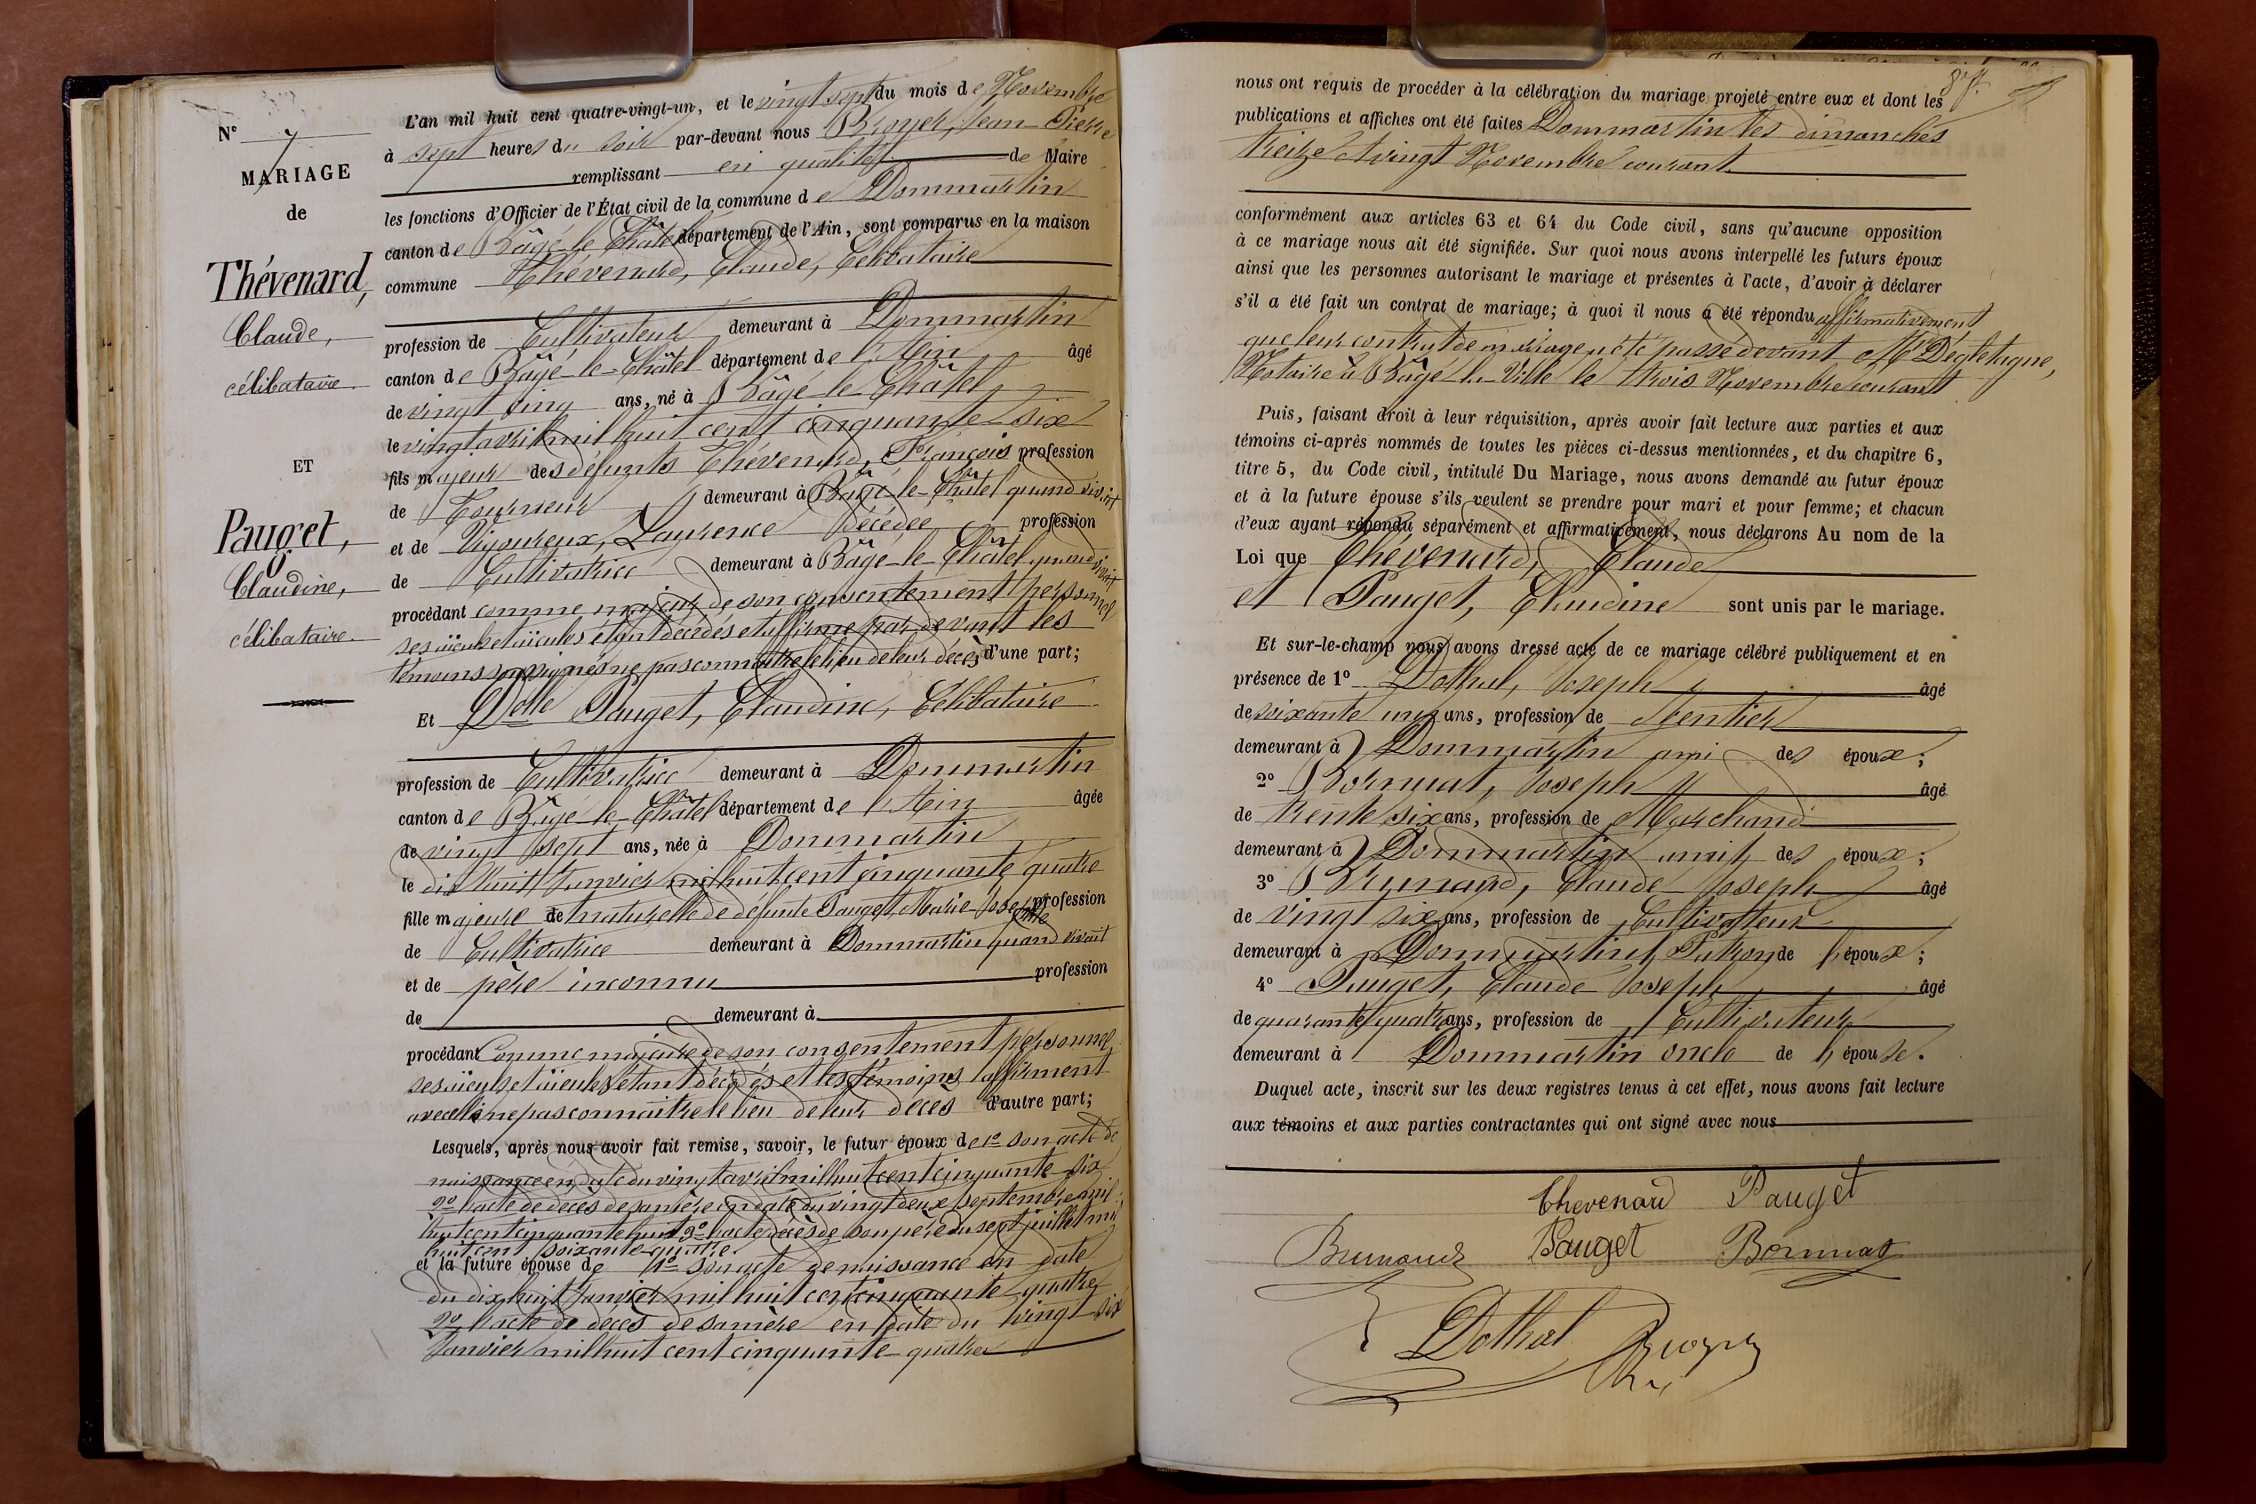 N° 7
MARIAGE
de
Thévenard,
Claude,
célibataire.
ET
Pauget,
Claudine,
célibataire.
L'an mil huit cent quatre-vingt-un, et le vingt sept du mois de Novembre
à sept heures du soir par-devant nous Broyer, Jean Pierre
remplissant en qualité de Maire
les fonctions d'Officier de l'État civil de la commune de Dommartin
canton de Bâgé-le-Châtel département de l'Ain, sont comparus en la maison
commune Thévenard, Claude, Célibataire
profession de Cultivateur demeurant à Dommartin
canton de Bâgé-le-Châtel département de l'Ain âgé
de vingt cinq ans, né à Bâgé-le-Châtel
le vingt avril mil huit cent cinquante-six
fils majeur des défunts Thévenard, François profession
de Tourneur demeurant à Bâgé-le-Châtel quand vivait
et de Vigoureux, Laurence Décédée profession
de Cultivatrice demeurant à Bâgé-le-Châtel quand vivait
procédant comme majeur de son consentement personnel
ses aïeuls et aïeules étant décédés et affirme par devant les
témoins soussignés ne pas connaître le lieu de leur décès d'une part;
Et Delle Pauget, Claudine, Célibataire
profession de Cultivatrice demeurant à Dommartin
canton de Bâgé-le-Châtel département de l'Ain âgée
de vingt sept ans, née à Dommartin
le dix huit Janvier mil huit cent cinquante quatre
fille majeure de naturelle de défunte Pauget, Marie-Josephte profession
de Cultivatrice demeurant à Dommartin quand vivait
et de père inconnu profession
de demeurant à
procédant Comme majeure de son consentement personnel
ses aïeuls et aïeules étant décédés et les témoins affirment
avec elle ne pas connaître le lieu de leur décès d'autre part;
Lesquels, après nous avoir fait remise, savoir, le futur époux de 1° son acte de
naissance en date du vingt avril mil huit cent cinquante-six
2° l'acte de décès de sa mère en date du vingt deux septembre mil
huit cent cinquante huit 3° l'acte décès de son père du sept juillet mil
huit cent soixante-quatre.
et la future épouse de 1° son acte de naissance en date
du dix huit Janvier mil huit cent cinquante-quatre
2° l'acte de décès de sa mère en date du vingt six
Janvier mil huit cent cinquante-quatre
nous ont requis de procéder à la célébration du mariage projeté entre eux et dont les
publications et affiches ont été faites Dommartin les dimanches
treize et vingt Novembre courant.
conformément aux articles 63 et 64 du Code civil, sans qu'aucune opposition
à ce mariage nous ait été signifiée. Sur quoi nous avons interpellé les futurs époux
ainsi que les personnes autorisant le mariage et présentes à l'acte, d'avoir à déclarer
s'il a été fait un contrat de mariage; à quoi il nous a été répondu affirmativement
que leur contrat de mariage a été passé devant Me Dégletagne,
Notaire à Bâgé-la-Ville le trois Novembre courant
Puis, faisant droit à leur réquisition, après avoir fait lecture aux parties et aux
témoins ci-après nommés de toutes les pièces ci-dessus mentionnées, et du chapitre 6,
titre 5, du Code civil, intitulé Du Mariage, nous avons demandé au futur époux
et à la future épouse s'ils veulent se prendre pour mari et pour femme; et chacun
d'eux ayant répondu séparément et affirmativement, nous déclarons Au nom de la
Loi que Thévenard, Claude
et Pauget, Claudine sont unis par le mariage.
Et sur-le-champ nous avons dressé acte de ce mariage célébré publiquement et en
présence de 1° Dothal, Joseph âgé
de soixante un ans, profession de Rentier
demeurant à Dommartin ami des époux;
2° Bornuat, Joseph âgé
de trente six ans, profession de Marchand
demeurant à Dommartin ami des époux;
3° Brunaud, Claude Joseph âgé
de vingt six ans, profession de Cultivateur
demeurant à Dommartin Patron de l'époux;
4° Pauget, Claude Joseph âgé
de quarante quatre ans, profession de Cultivateur
demeurant à Dommartin oncle de l'épouse.
Duquel acte, inscrit sur les deux registres tenus à cet effet, nous avons fait lecture
aux témoins et aux parties contractantes qui ont signé avec nous
Thevenard Pauget
Brunaud Pauget Bornuat
Dothal Broyer